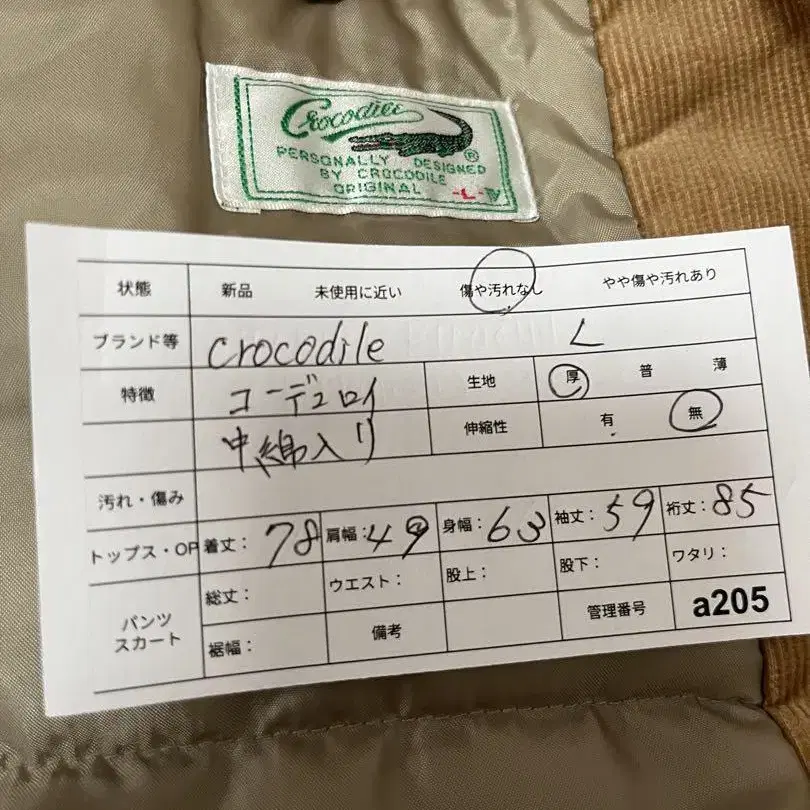 Crocodile
®
PERSONALLY DESIGNED
BY CROCODILE
ORIGINAL -L-
状態 新品 未使用に近い 傷や汚れなし やや傷や汚れあり
ブランド等 crocodile L
特徴 コーデュロイ 生地 厚 普 薄
中綿入り 伸縮性 有 無
汚れ・傷み
トップス・OP 着丈：78 肩幅：49 身幅：63 袖丈：59 裄丈：85
パンツ スカート 総丈： ウエスト： 股上： 股下： ワタリ：
裾幅： 備考 管理番号 a205